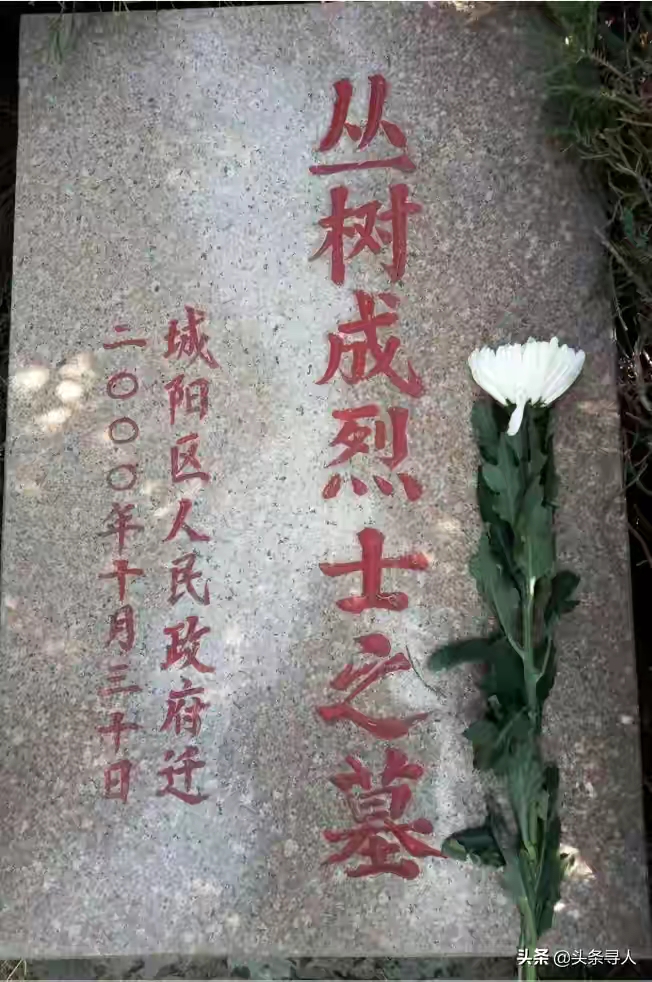 丛树成烈士之墓
城阳区人民政府迁
二〇〇〇年十月三十日
头条 @头条寻人